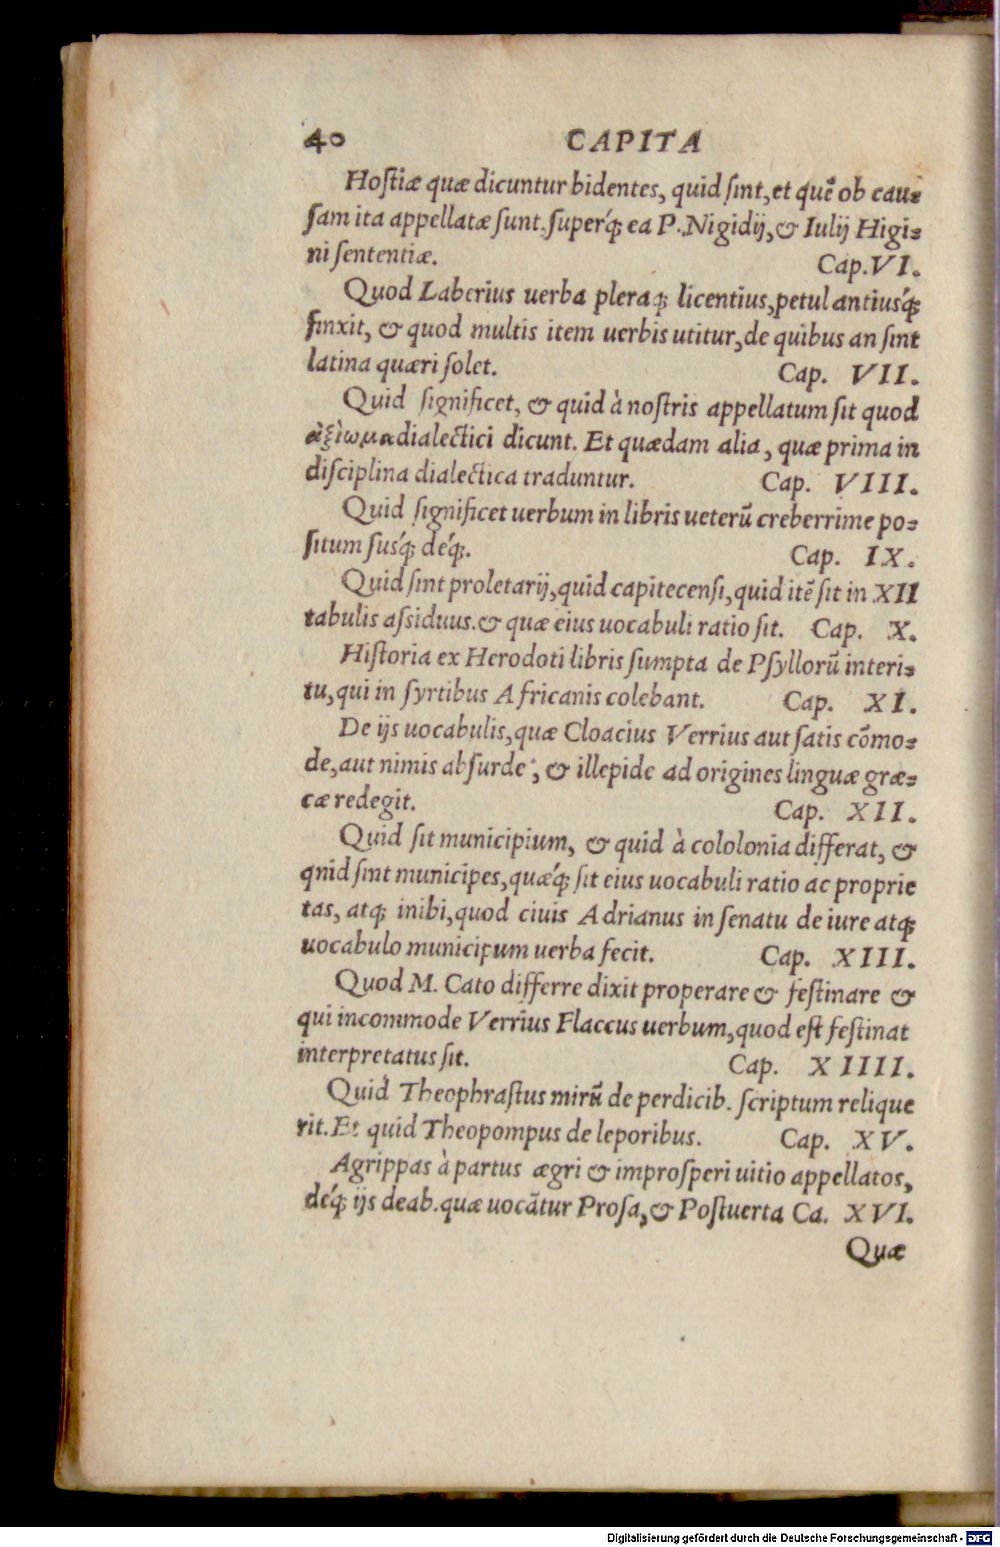 40 CAPITA
Hostiæ quæ dicuntur bidentes, quid sint, et quẽ ob cau-
sam ita appellatæ sunt. superq́; ea P. Nigidij, & Iulij Higi-
ni sententiæ. Cap. VI.
Quod Laberius uerba pleraq; licentius, petulantiusq́;
finxit, & quod multis item uerbis utitur, de quibus an sint
latina quæri solet. Cap. VII.
Quid significet, & quid à nostris appellatum sit quod
ἀξίωμα dialectici dicunt. Et quædam alia, quæ prima in
disciplina dialectica traduntur. Cap. VIII.
Quid significet uerbum in libris ueterũ creberrime po-
situm susq́; deq́;. Cap. IX.
Quid sint proletarij, quid capitecensi, quid itẽ sit in XII
tabulis assiduus. & quæ eius uocabuli ratio sit. Cap. X.
Historia ex Herodoti libris sumpta de Psyllorũ interi-
tu, qui in syrtibus Africanis colebant. Cap. XI.
De ijs uocabulis, quæ Cloacius Verrius aut satis cõmo-
de, aut nimis absurde, & illepide ad origines linguæ græ-
cæ redegit. Cap. XII.
Quid sit municipium, & quid à cololonia differat, &
qnid sint municipes, quæq́; sit eius uocabuli ratio ac proprie
tas, atq; inibi, quod ciuis Adrianus in senatu de iure atq;
uocabulo municipum uerba fecit. Cap. XIII.
Quod M. Cato differre dixit properare & festinare &
qui incommode Verrius Flaccus uerbum, quod est festinat
interpretatus sit. Cap. XIIII.
Quid Theophrastus mirũ de perdicib. scriptum relique
rit. Et quid Theopompus de leporibus. Cap. XV.
Agrippas à partus ægri & improsperi uitio appellatos,
deq́; ijs deab. quæ uocãtur Prosa, & Postuerta Ca. XVI.
Quæ
Digitalisierung gefördert durch die Deutsche Forschungsgemeinschaft - DFG